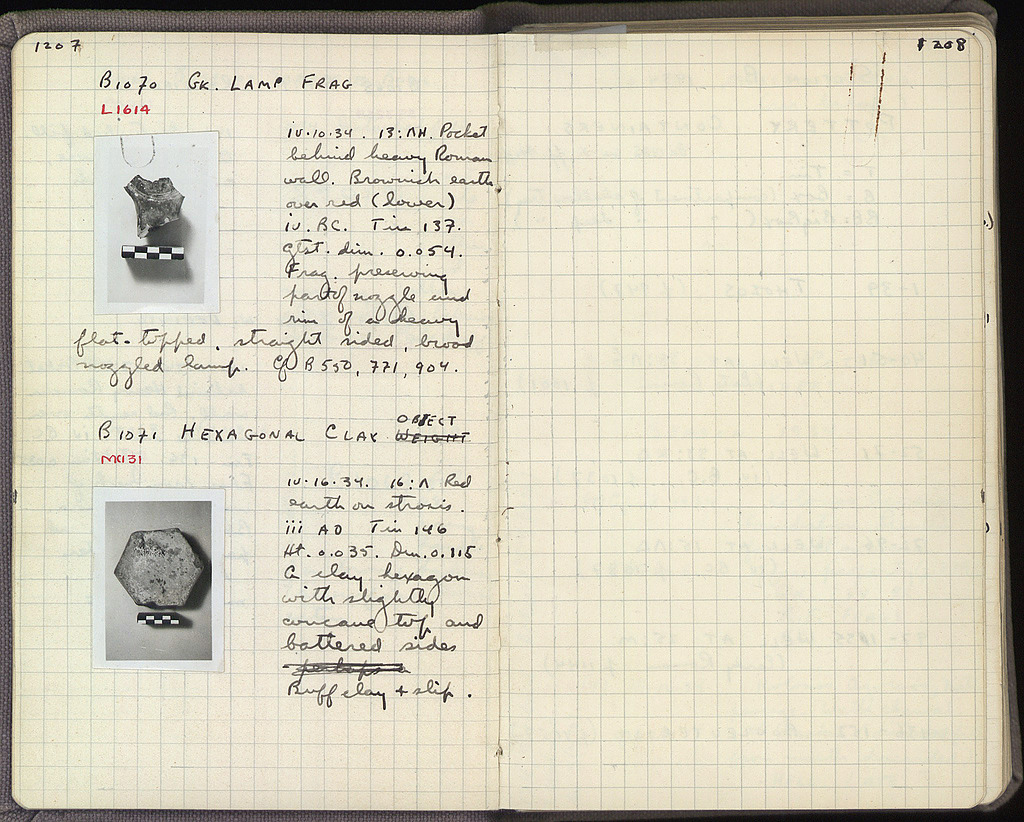 1207
B1070 GK. LAMP FRAG
L1614
iv.10.34. 13:ΛΗ. Pocket
behind heavy Roman
wall. Brownish earth
over red (lower)
iv. BC. Tin 137.
Gtst. dim. 0.054.
Frag. preserving
part of nozzle and
rim of a heavy
flat-topped, straight sided, broad
nozzled lamp. Cf B 550, 771, 904.
B1071 HEXAGONAL CLAY WEIGHT OBJECT
MC131
iv.16.34. 16:Λ Red
earth on strosis.
iii AD Tin 146
Ht. 0.035. Dim. 0.115
A clay hexagon
with slightly
concave top and
battered sides
- perhaps a
Buff clay + slip.
1208